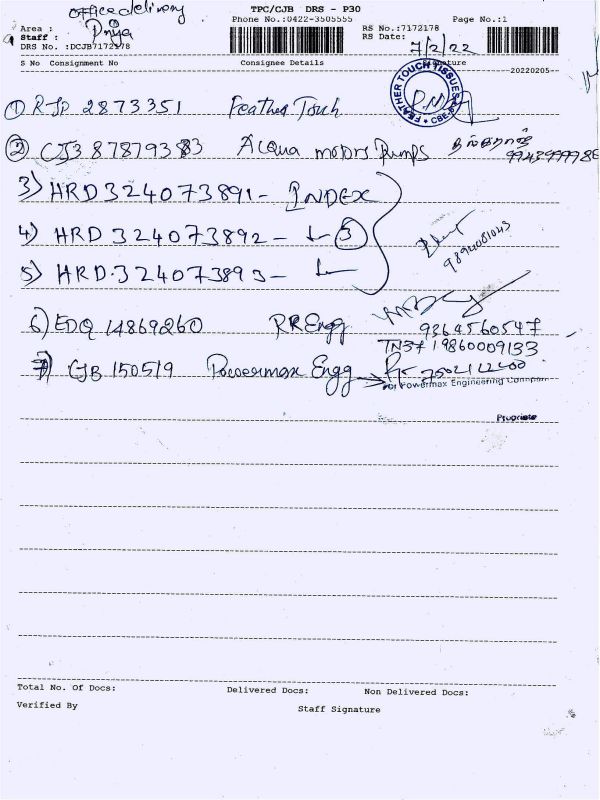 office delivery
TPC/CJB DRS - P30
Area :
Phone No.:0422-3505555
RS No.:7172178
Page No.:1
Staff : Priya
RS Date: 7/2/22
DRS No. :DCJB7172178
S No Consignment No Consignee Details Signature No
20220205
FEATHER TOUCH TISSUES
① RJP 2873351 Feather Touch
② CJ3 87879383 Acqua motors Pumps
3) HRD324073891 - INDEX
4) HRD 324073892 - 3
5) HRD.324073893 -
9894081043
6) EDQ 14869260 RR Engg
9364560547
TN37 19860009133
7) CJB 150519 Powermax Engg 7502112200
For Powermax Engineering Company
Total No. Of Docs: Delivered Docs: Non Delivered Docs:
Verified By Staff Signature